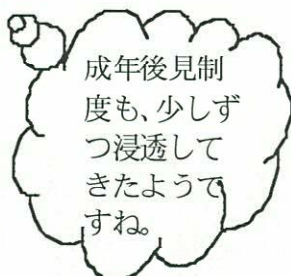 成年後見制
度も、少しず
つ浸透して
きたようで
すね。